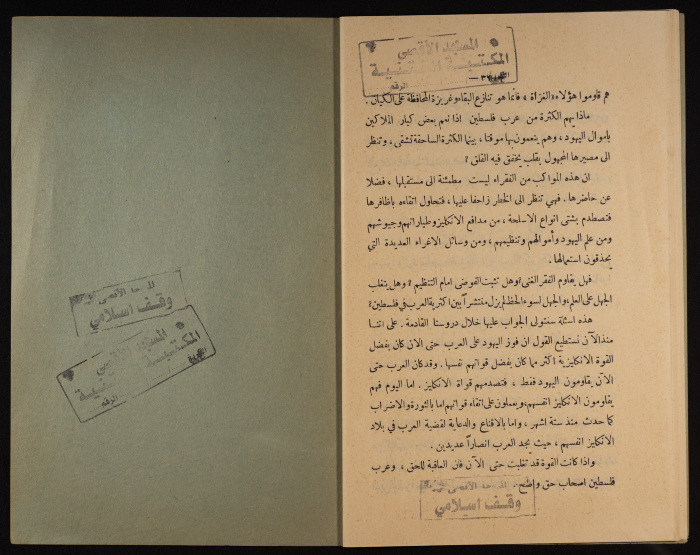 المسجد الأقصى
المكتبة
الرقم
— ٣٢ —
هم قاوموا هؤلاء «الغزاة» فأنما هو تنازع البقاء وغريزة المحافظة على الكيان .
ماذا يهم الكثرة من عرب فلسطين اذا نعم بعض كبار الملاكين
باموال اليهود ، وهم ينعمون بها موقتا ، بينما الكثرة الساحقة تشقى ، وتنظر
الى مصيرها المجهول بقلب يخفق فيه القلق ؟
ان هذه المواكب من الفقراء ليست مطمئنة الى مستقبلها ، فضلا
عن حاضرها . فهي تنظر الى الخطر زاحفا عليها ، فتحاول اتقاءه باظافرها
فتصطدم بشتى انواع الاسلحة ، من مدافع الانكليز وطياراتهم وجيوشهم
ومن علم اليهود وأموالهم وتنظيمهم ، ومن وسائل الاغراء العديدة التي
يحذقون استعمالها .
فهل يقاوم الفقر الغنى ؟ وهل تثبت الفوضى امام التنظيم ؟ وهل يتغلب
الجهل على العلم ، والجهل لسوء الحظ لم يزل منتشراً بين اكثرية العرب في فلسطين ؟
هذه اسئلة سنتولى الجواب عليها خلال دروسنا القادمة . على اننا
منذ الآن نستطيع القول ان فوز اليهود على العرب حتى الان كان بفضل
القوة الانكليزية اكثر مما كان بفضل قواتهم نفسها . وقد كان العرب حتى
الآن يقاومون اليهود فقط ، فتصدمهم قواة الانكليز . اما اليوم فهم
يقاومون الانكليز انفسهم ، ويعملون على اتقاء قواتهم اما بالثورة والاضراب
كما حدث منذ ستة اشهر ، واما بالاقناع والدعاية لقضية العرب في بلاد
الانكليز انفسهم ، حيث نجد العرب انصاراً عديدين .
واذا كانت القوة قد تغلبت حتى الآن فان العاقبة للحق ، وعرب
فلسطين اصحاب حق واضح .
الأقصى
وقف اسلامي
الأقصى
وقف اسلامي
المسجد الأقصى
المكتبة
الرقم